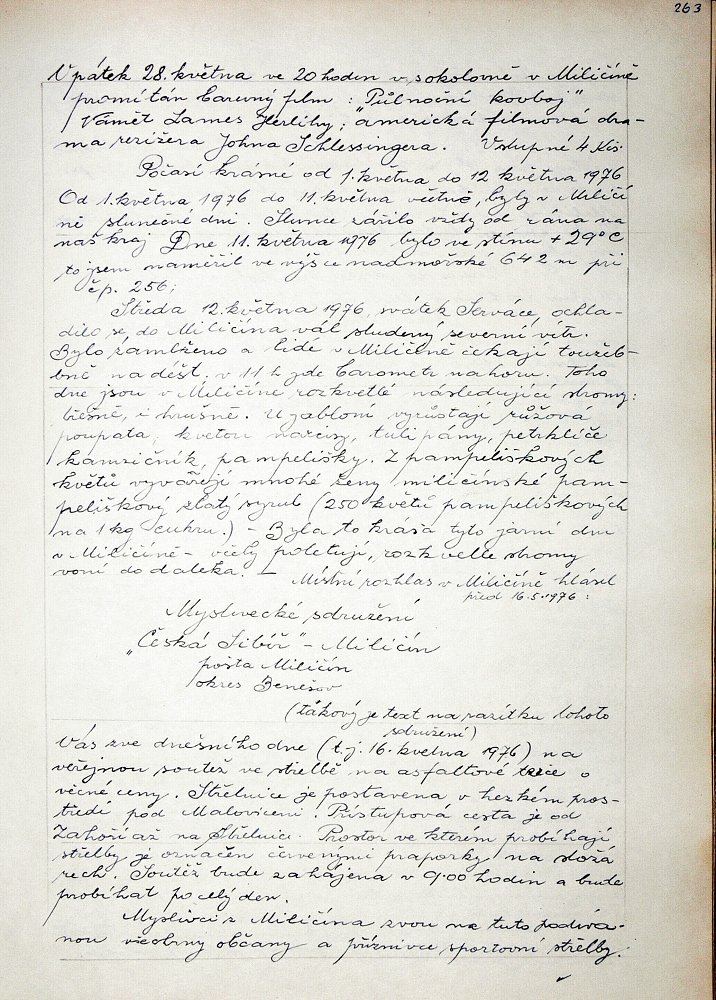 263
V pátek 28. května ve 20 hodin v sokolovně v Miličíně
promítán barevný film : "Půlnoční kovboj"
Námět James Herlihy; americká filmová dra-
ma režiséra Johna Schlessingera. Vstupné 4 Kčs.
Počasí krásné od 1. května do 12 května 1976
Od 1. května 1976 do 11. května včetně, byly v Miličí
ně slunečné dni. Slunce zářilo vždy od rána na
náš kraj Dne 11. května 1976 bylo ve stínu + 29° C
to jsem naměřil ve výšce nadmořské 642 m při
čp. 256;
Středa 12. května 1976, svátek Serváce, ochla-
dilo se, do Miličína vál studený severní vítr.
Bylo zamlženo a lidé v Miličíně čekají toužeb-
ně na déšť. v 11 h jde barometr nahoru. Toho
dne jsou v Miličíně rozkvetlé následující stromy:
třešně, i hrušně. U jabloní vyrůstají růžová
poupata, kvetou narcisy, tulipány, petrklíče
kamzičník, pampelišky. Z pampeliškových
květů vyvářejí mnohé ženy miličínské pam-
peliškový zlatý syrub (250 květů pampeliškových
na 1 kg cukru.) - Byla to krása tyto jarní dni
v Miličíně - včely poletují, rozkvetlé stromy
voní do daleka. — Místní rozhlas v Miličíně hlásil
před 16.5.1976 :
Myslivecké sdružení
"Česká Sibiř" - Miličín
pošta Miličín
okres Benešov
(takový je text na razítku tohoto
sdružení)
Vás zve dnešního dne (t.j. 16. května 1976) na
veřejnou soutěž ve střelbě na asfaltové terče o
věcné ceny. Střelnice je postavena v hezkém pros-
tředí pod Malovicemi. Přístupová cesta je od
Zahoří až na Střelnici. Prostor ve kterém probíhají
střelby je označen červenými praporky na stožá
rech. Soutěž bude zahájena v 9.00 hodin a bude
probíhat po celý den.
Myslivci z Miličína zvou na tuto podíva-
nou všechny občany a příznivce sportovní střelby.